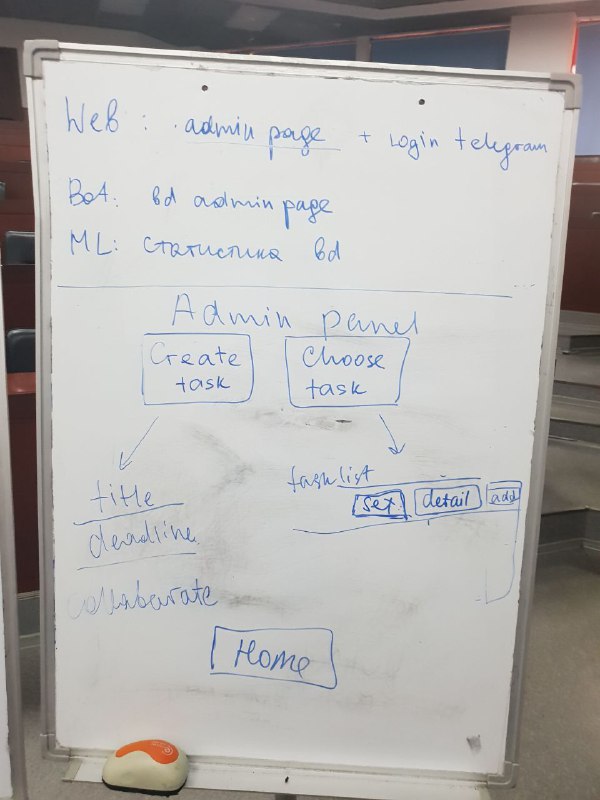 Web : admin page + login telegram
Bot: bd admin page
ML: статистика bd
Admin panel
Create
task
Choose
task
title
deadline
collaborate
task list
set detail add
Home